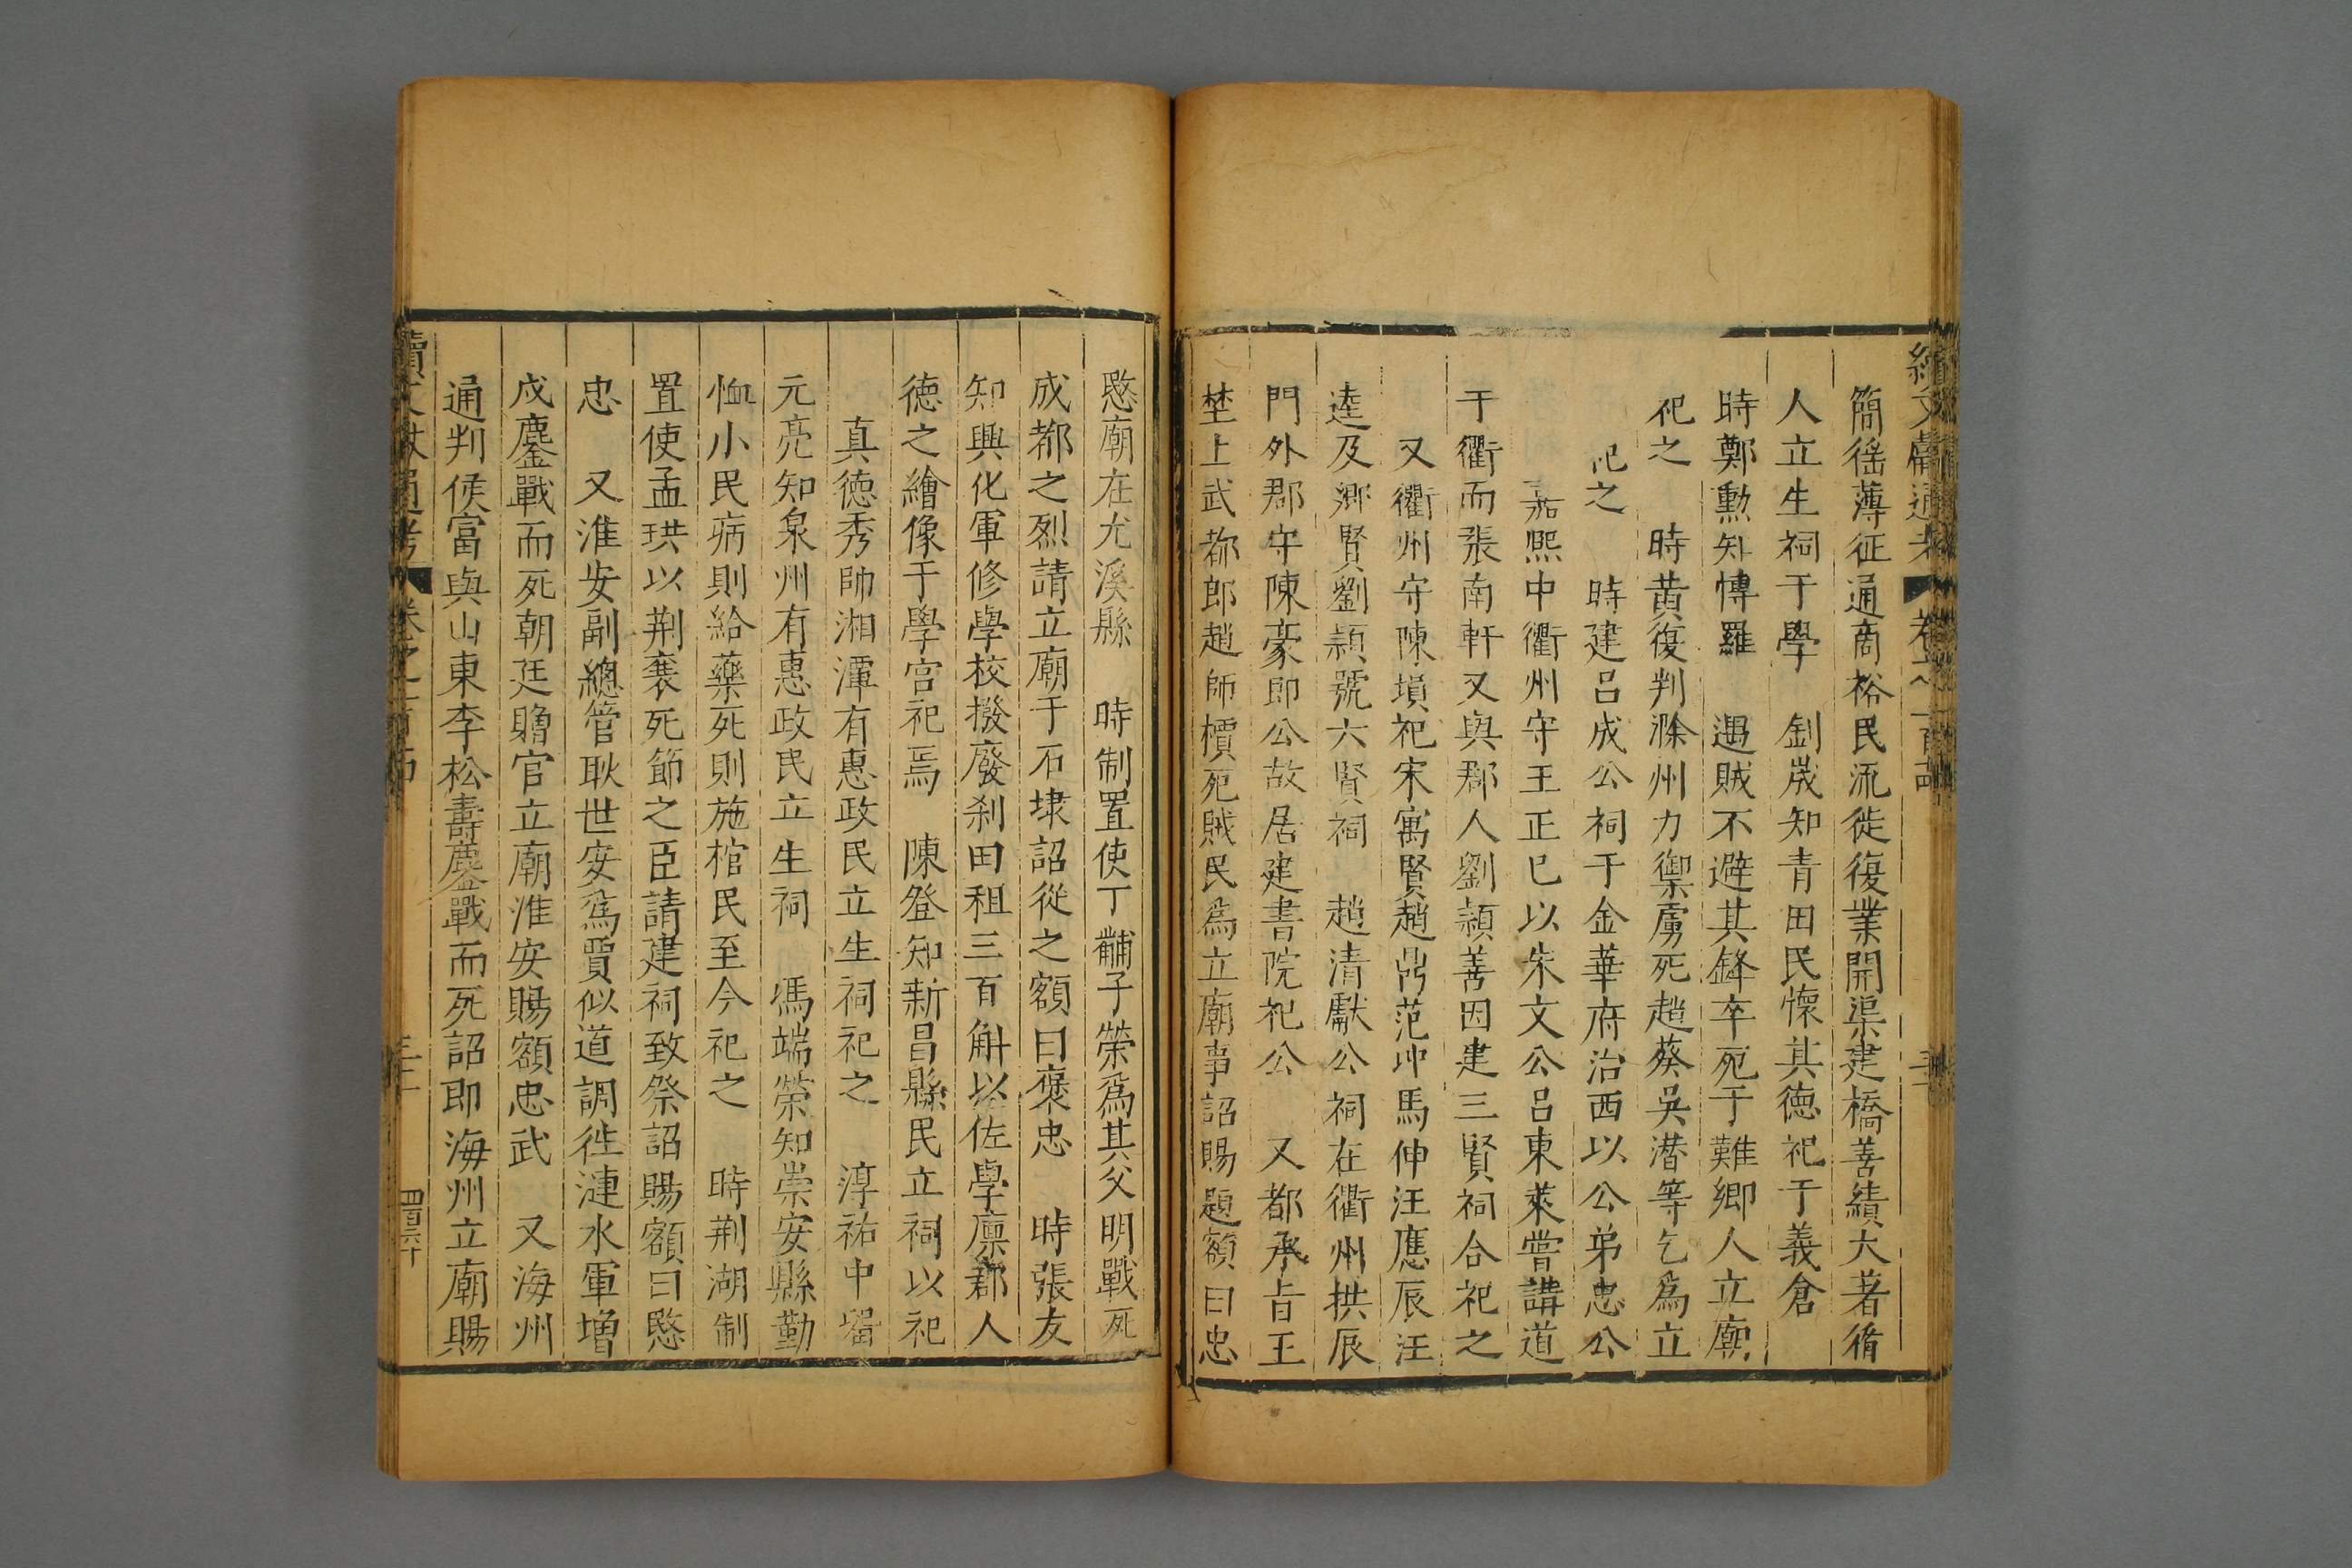 簡徭薄征通商裕民流徙復業開渠建橋善績大著循
人立生祠于學　劉崴知青田民懷其德祀于義倉
時鄭勳知博羅　遇賊不避其鋒卒死于難鄉人立廟
祀之　時黃復判滁州力禦虜死趙葵吳潛等乞爲立
祀之　時建呂成公祠于金華府治西以公弟忠公
嘉熙中衢州守王正已以朱文公呂東萊嘗講道
于衢而張南軒又與郡人劉頴善因建三賢祠合祀之
又衢州守陳塤祀宋寓賢趙鼎范冲馬伸汪應辰汪
逵及鄉賢劉頴號六賢祠　趙清獻公祠在衢州拱辰
門外郡守陳豪即公故居建書院祀公　又都承旨王
埜上武都郎趙師檟死賊民爲立廟事詔賜題額曰忠
愍廟在尤溪縣　時制置使丁黼子榮爲其父明戰死
成都之烈請立廟于石埭詔從之額曰褒忠　時張友
知興化軍修學校撥廢刹田租三百斛以佐學廪郡人
德之繪像于學宫祀焉　陳登知新昌縣民立祠以祀
真德秀帥湘潭有惠政民立生祠祀之　淳祐中留
元亮知泉州有惠政民立生祠　馮端榮知崇安縣勤
恤小民病則給藥死則施棺民至今祀之　時荆湖制
置使孟珙以荆襄死節之臣請建祠致祭詔賜額曰愍
忠　又淮安副總管耿世安爲賈似道調徃漣水軍增
戍鏖戰而死朝廷贈官立廟淮安賜額忠武　又海州
通判侯富與山東李松壽鏖戰而死詔即海州立廟賜